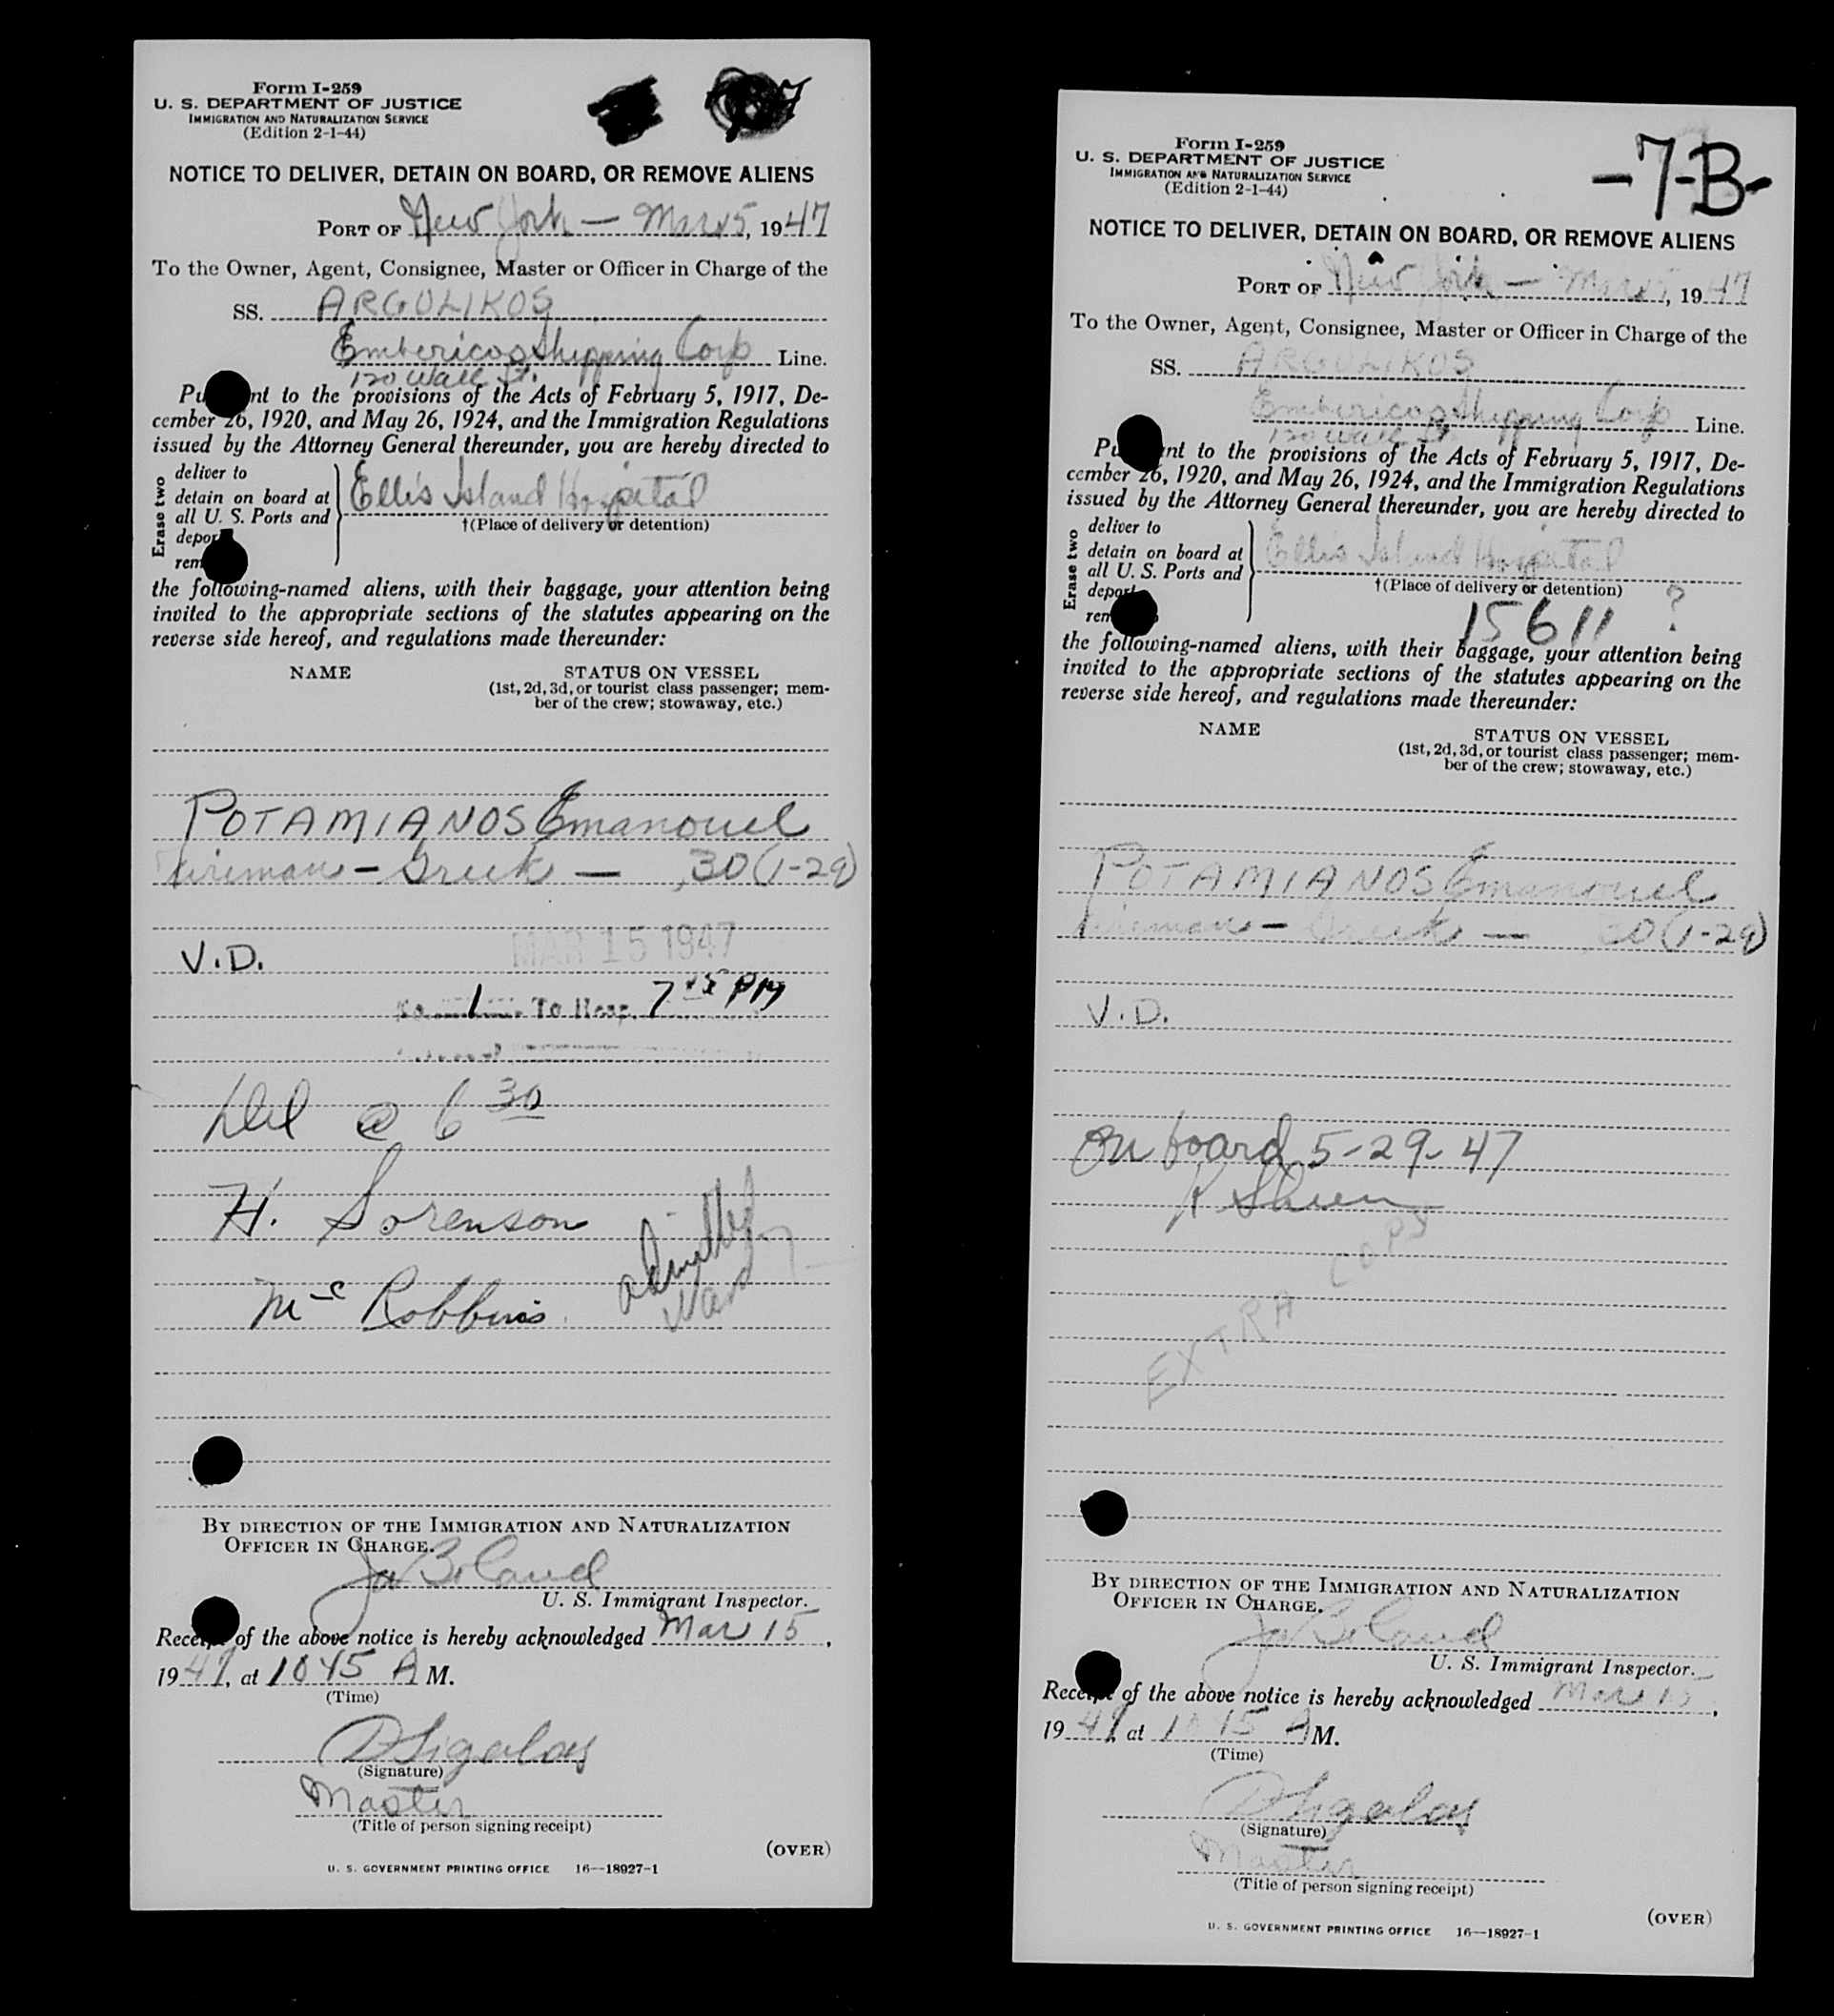 Form I-259
U. S. DEPARTMENT OF JUSTICE
IMMIGRATION AND NATURALIZATION SERVICE
(Edition 2-1-44)
NOTICE TO DELIVER, DETAIN ON BOARD, OR REMOVE ALIENS
PORT OF New York — Mar 15, 1947
To the Owner, Agent, Consignee, Master or Officer in Charge of the
SS. ARGOLIKOS
Embericos Shipping Corp Line.
120 Wall St.
Pu nt to the provisions of the Acts of February 5, 1917, De-
cember 26, 1920, and May 26, 1924, and the Immigration Regulations
issued by the Attorney General thereunder, you are hereby directed to
Erase two
deliver to
detain on board at
all U. S. Ports and
depor
rem
Ellis Island Hospital
†(Place of delivery or detention)
the following-named aliens, with their baggage, your attention being
invited to the appropriate sections of the statutes appearing on the
reverse side hereof, and regulations made thereunder:
NAME STATUS ON VESSEL
(1st, 2d, 3d, or tourist class passenger; mem-
ber of the crew; stowaway, etc.)
POTAMIANOS Emanouel
Fireman - Greek — 30 (1-29)
MAR 15 1947
V.D.
No. 1 To Hosp. 7 45 PM
Del @ 6 30
H. Sorenson
Mc Robbins
BY DIRECTION OF THE IMMIGRATION AND NATURALIZATION
OFFICER IN CHARGE.
U. S. Immigrant Inspector.
Receipt of the above notice is hereby acknowledged Mar 15,
1947, at 1045 A M.
(Time)
(Signature)
Master
(Title of person signing receipt)
(OVER)
U. S. GOVERNMENT PRINTING OFFICE 16—18927-1
Form I-259
U. S. DEPARTMENT OF JUSTICE
IMMIGRATION AND NATURALIZATION SERVICE
(Edition 2-1-44)
-7-B-
NOTICE TO DELIVER, DETAIN ON BOARD, OR REMOVE ALIENS
PORT OF New York — Mar 15, 1947
To the Owner, Agent, Consignee, Master or Officer in Charge of the
SS. ARGOLIKOS
Embericos Shipping Corp Line.
120 Wall St.
Pu nt to the provisions of the Acts of February 5, 1917, De-
cember 26, 1920, and May 26, 1924, and the Immigration Regulations
issued by the Attorney General thereunder, you are hereby directed to
Erase two
deliver to
detain on board at
all U. S. Ports and
depor
rem
Ellis Island Hospital
†(Place of delivery or detention)
15611 ?
the following-named aliens, with their baggage, your attention being
invited to the appropriate sections of the statutes appearing on the
reverse side hereof, and regulations made thereunder:
NAME STATUS ON VESSEL
(1st, 2d, 3d, or tourist class passenger; mem-
ber of the crew; stowaway, etc.)
POTAMIANOS Emanouel
Fireman - Greek — 30 (1-29)
V.D.
On board 5-29-47
EXTRA COPY
BY DIRECTION OF THE IMMIGRATION AND NATURALIZATION
OFFICER IN CHARGE.
U. S. Immigrant Inspector.
Receipt of the above notice is hereby acknowledged Mar 15,
1947, at 1045 A M.
(Time)
(Signature)
Master
(Title of person signing receipt)
(OVER)
U. S. GOVERNMENT PRINTING OFFICE 16—18927-1